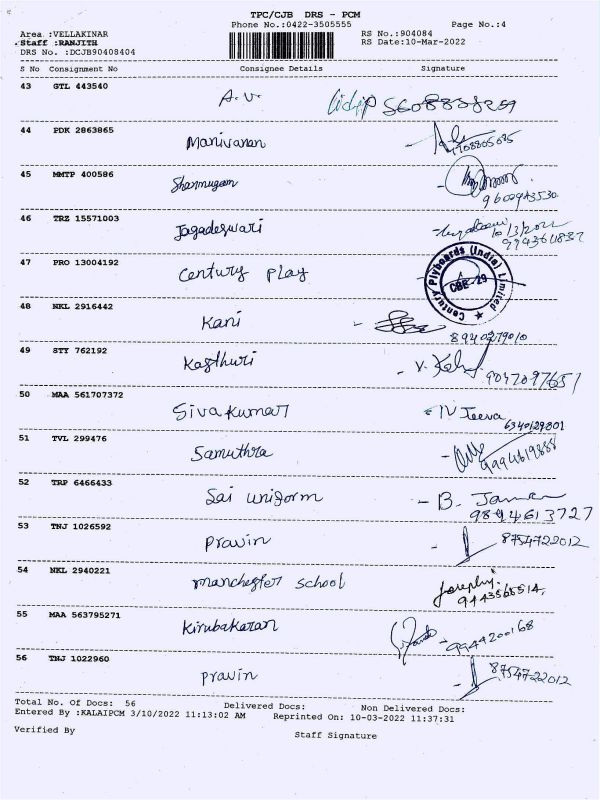 TPC/CJB DRS - PCM
Phone No.:0422-3505555 Page No.:4
Area :VELLAKINAR RS No.:904084
Staff :RANJITH RS Date:10-Mar-2022
DRS No. :DCJB90408404
S No Consignment No Consignee Details Signature
43 GTL 443540 A.V.
44 PDK 2863865 Manivanan
45 MMTP 400586 Shanmugam
46 TRZ 15571003 Jagadeswari 10/3/2022
47 PRO 13004192 Century Play Century Plyboards (India) Limited CBE-29
48 NKL 2916442 Kani
49 STY 762192 Kasthuri
50 MAA 561707372 Sivakumar Jeeva
51 TVL 299476 Samuthra
52 TRP 6466433 Sai uniform - B.
9894613727
53 TNJ 1026592 Pravin - 8754722012
54 NKL 2940221 manchester school
55 MAA 563795271 Kirubakaran - 9944200168
56 TNJ 1022960 Pravin - 8754722012
Total No. Of Docs: 56 Delivered Docs: Non Delivered Docs:
Entered By :KALAIPCM 3/10/2022 11:13:02 AM Reprinted On: 10-03-2022 11:37:31
Verified By Staff Signature